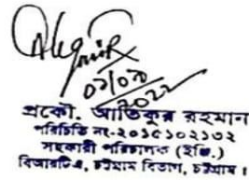 ০১/০৩/২০২২
প্রকৌ. আতিকুর রহমান
পরিচিতি নং-২০১৫১০২১৩২
সহকারী পরিচালক (ইঞ্জি.)
বিআরটিএ, চট্টগ্রাম বিভাগ, চট্টগ্রাম ।